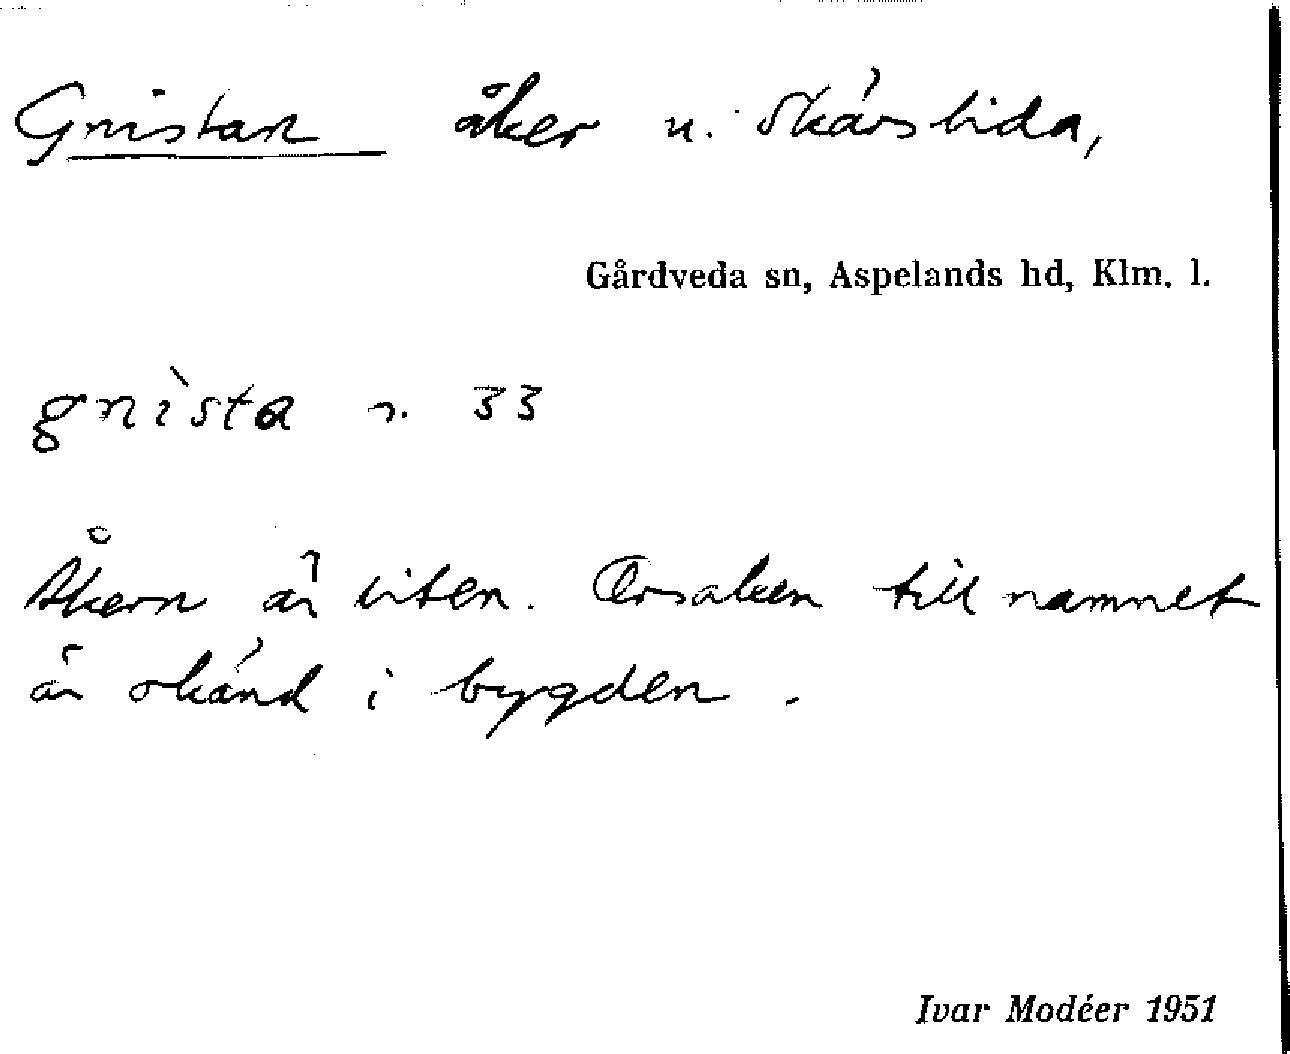 Gnistan åker u. Skärslida,
Gårdveda sn, Aspelands hd, Klm. l.
gnìsta n. 33
Åkern är liten. Orsaken till namnet
är okänd i bygden.
Ivar Modéer 1951